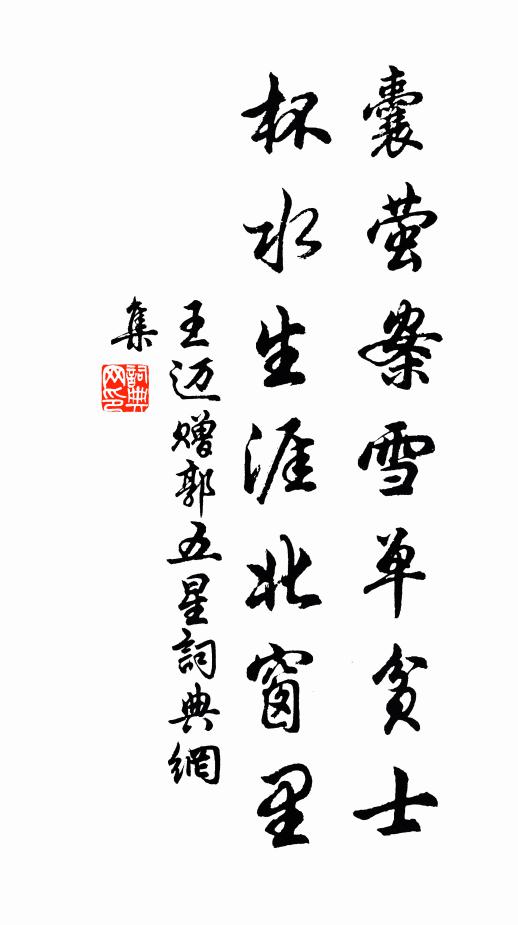 囊萤案雪单贫士
杯水生涯北窗里
王迈赠郭五星詞典網
集
詞典
网印